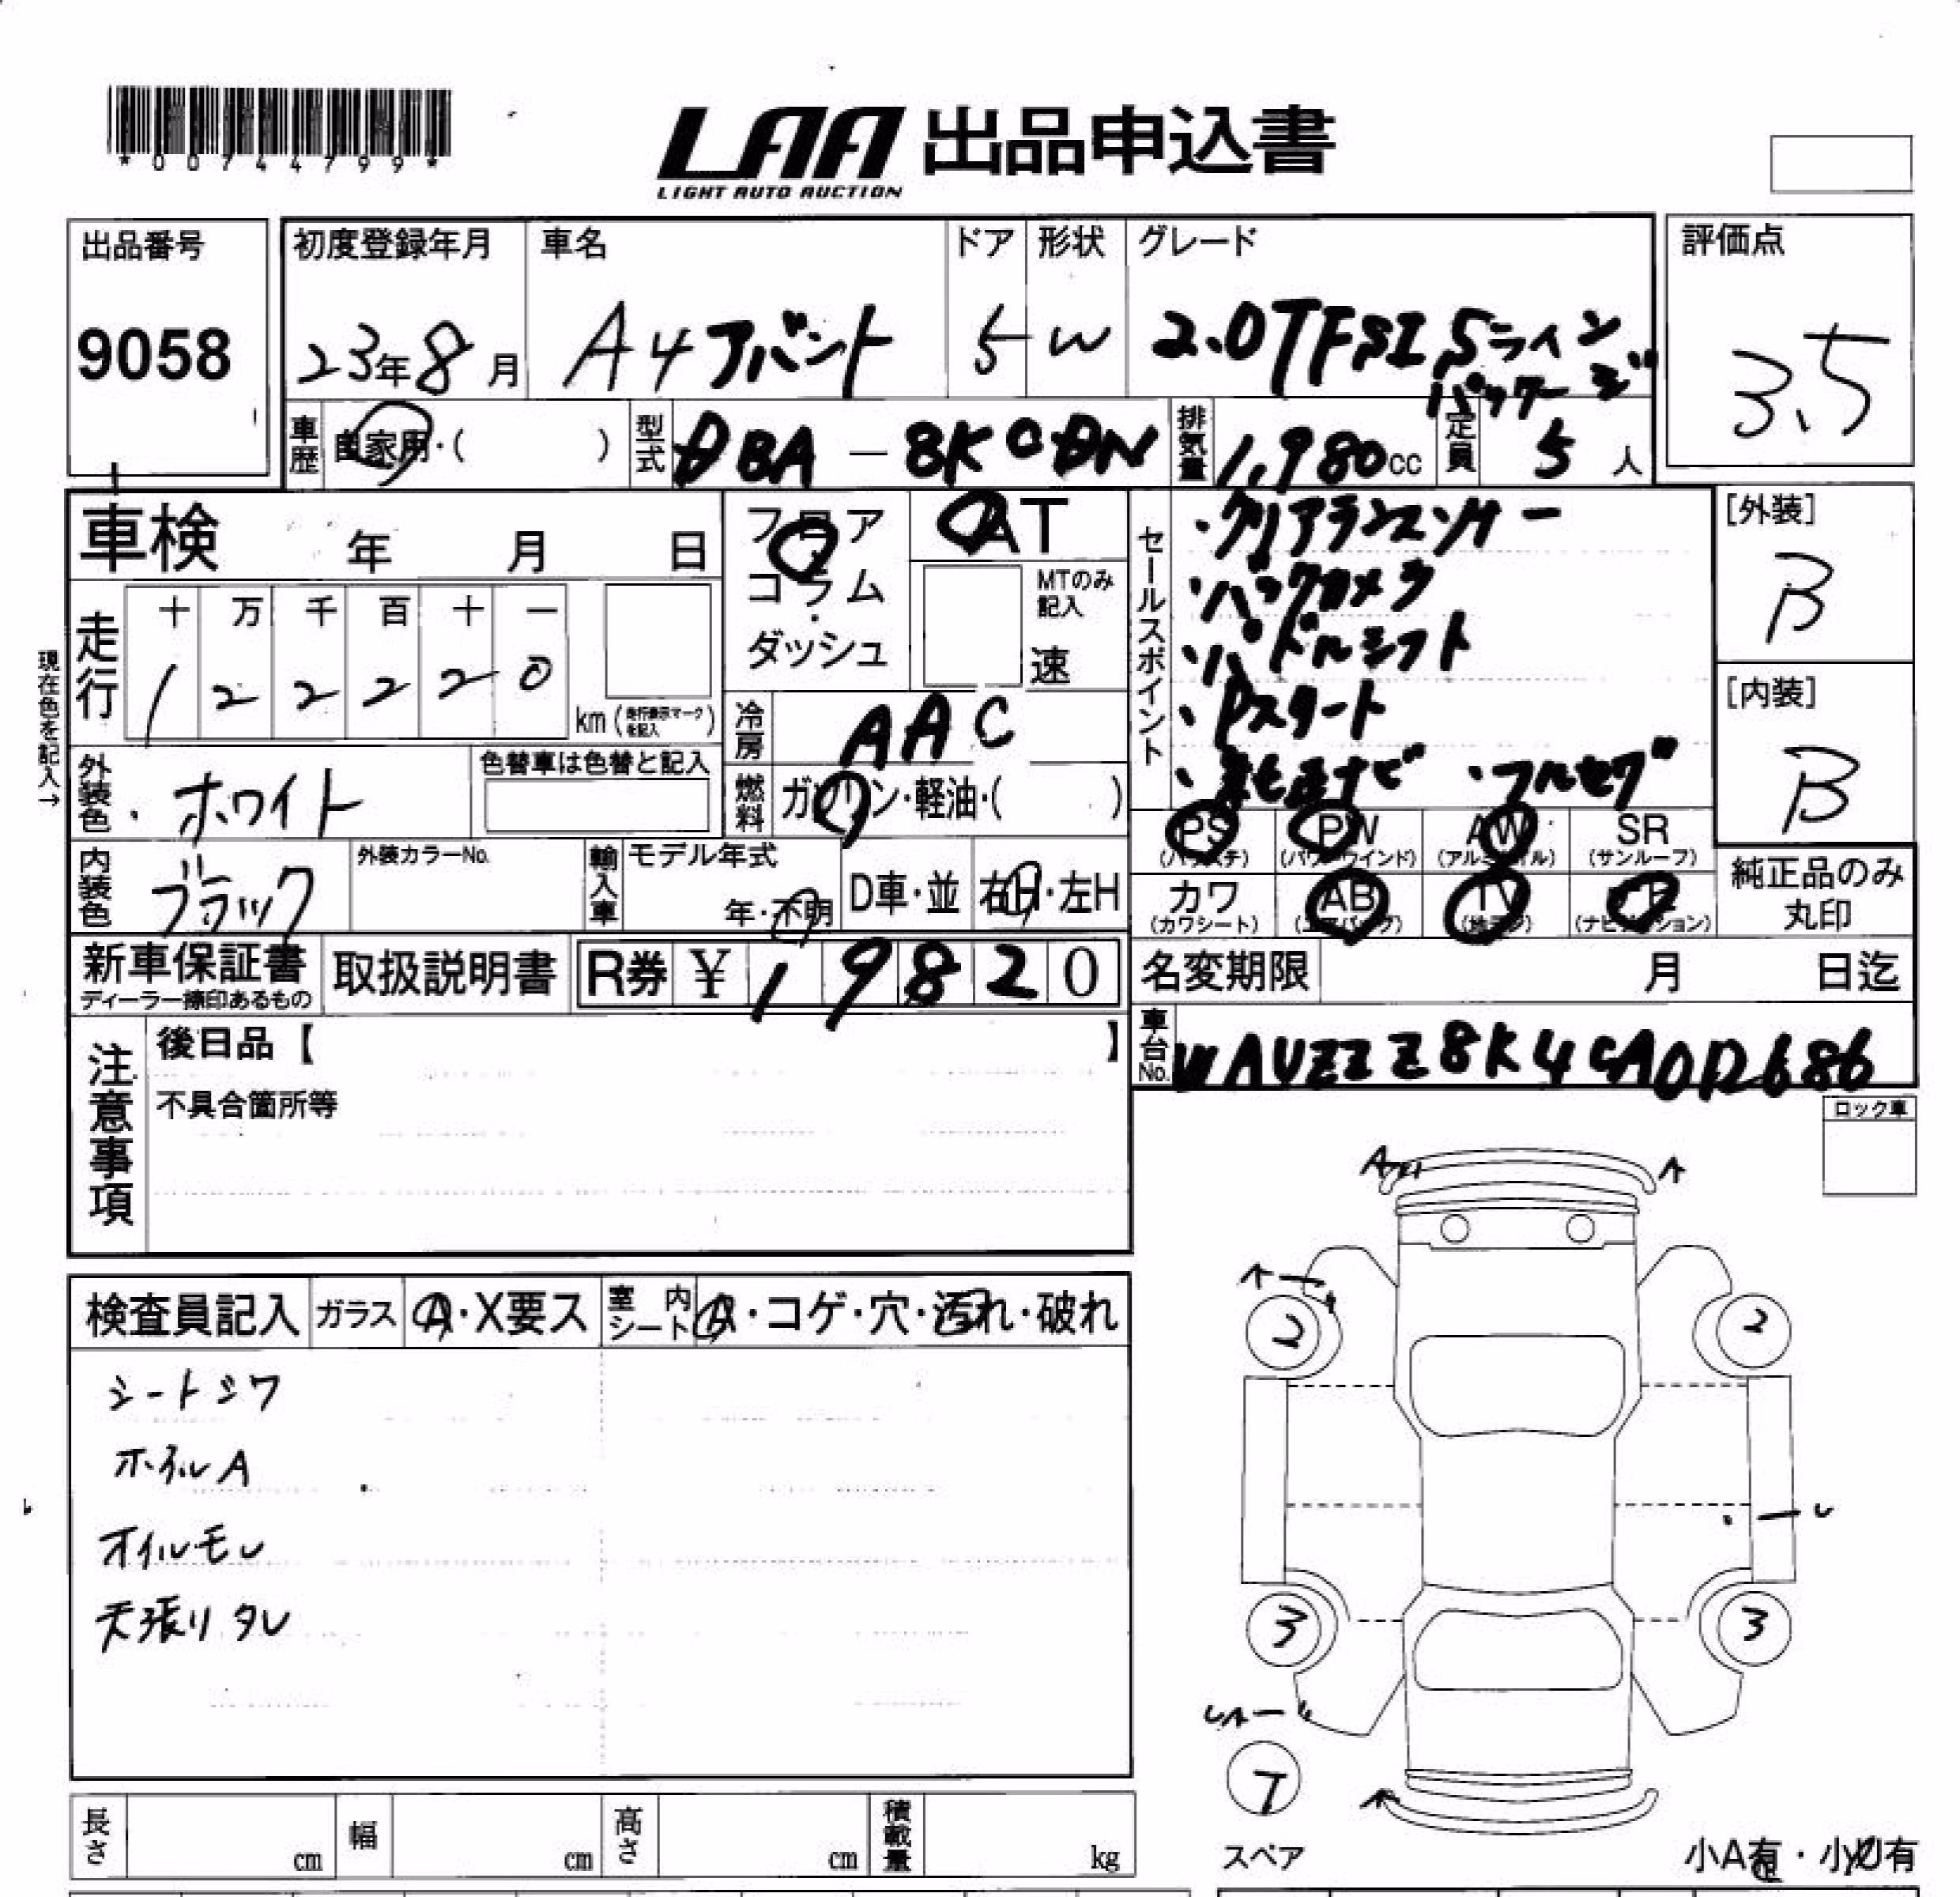 *00744799*
LAA 出品申込書
LIGHT AUTO AUCTION
出品番号
9058
初度登録年月
23年8月
車名
A4アバント
ドア
5
形状
W
グレード
2.0TFSI Sライン
パッケージ
評価点
3.5
車歴
自家用・( )
型式
DBA-8KCDN
排気量
1,980cc
定員
5人
車検 年 月 日
フロア
・
コラム
・
ダッシュ
AT
MTのみ
記入
速
セールスポイント
・クリアランスソナー
・バックカメラ
・パドルシフト
・Pスタート
・純正ナビ ・フルセグ
[外装]
B
[内装]
B
現在色を記入→
走行
十 万 千 百 十 一
1 2 2 2 2 0
km(走行表示マークを記入)
冷房
AAC
外装色
・ホワイト
色替車は色替と記入
燃料
ガソリン・軽油・( )
PS
(パワステ)
PW
(パワーウインド)
AW
(アルミホイル)
SR
(サンルーフ)
内装色
ブラック
外装カラーNo.
輸入車
モデル年式
年・不明
D車・並
右H・左H
カワ
(カワシート)
AB
(エアバッグ)
TV
(地デジ)
(ナビゲーション)
純正品のみ
丸印
新車保証書
ディーラー捺印あるもの
取扱説明書
R券 ¥ 1 9 8 2 0
名変期限 月 日迄
注意事項
後日品【 】
不具合箇所等
車台No.
WAUZZZ8K4CA0D2686
ロック車
検査員記入
ガラス
A・X要ス
室内
シート
A・コゲ・穴・汚れ・破れ
シートシワ
ホイルA
オイルモレ
天張りタレ
A
A
A
2
2
U
3
3
UA
T
A
スペア
小A有・小U有
長さ cm
幅 cm
高さ cm
積載量 kg